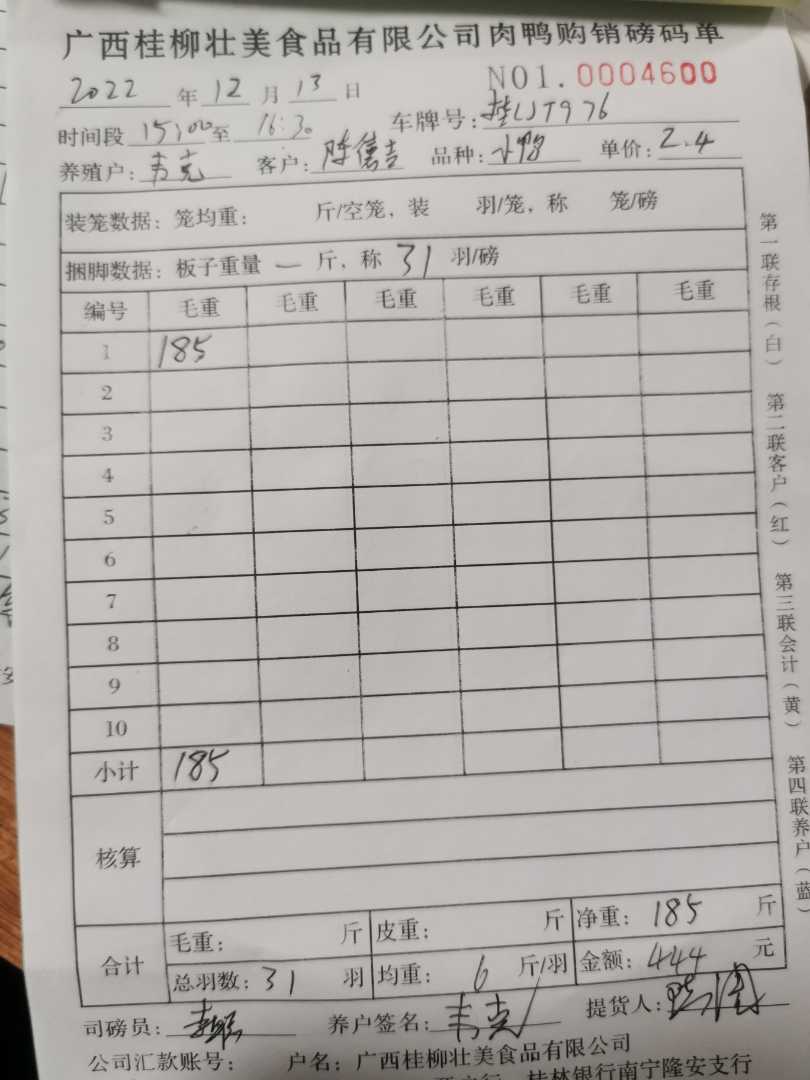 广西桂柳壮美食品有限公司肉鸭购销磅码单
2022 年 12 月 13 日 NO1. 0004600
时间段 15:00 至 16:30 车牌号: 桂LJT976
养殖户: 韦克 客户: 陈信吉 品种: 小鸭 单价: 2.4
装笼数据: 笼均重: 斤/空笼, 装 羽/笼, 称 笼/磅
捆脚数据: 板子重量 一 斤, 称 31 羽/磅
编号 毛重 毛重 毛重 毛重 毛重 毛重
1 185
2
3
4
5
6
7
8
9
10
小计 185
核算
合计 毛重: 斤 皮重: 斤 净重: 185 斤
总羽数: 31 羽 均重: 6 斤/羽 金额: 444 元
司磅员: 养户签名: 韦克 提货人:
公司汇款账号: 户名: 广西桂柳壮美食品有限公司
桂林银行南宁隆安支行
第一联存根(白) 第二联客户(红) 第三联会计(黄) 第四联养户(蓝)